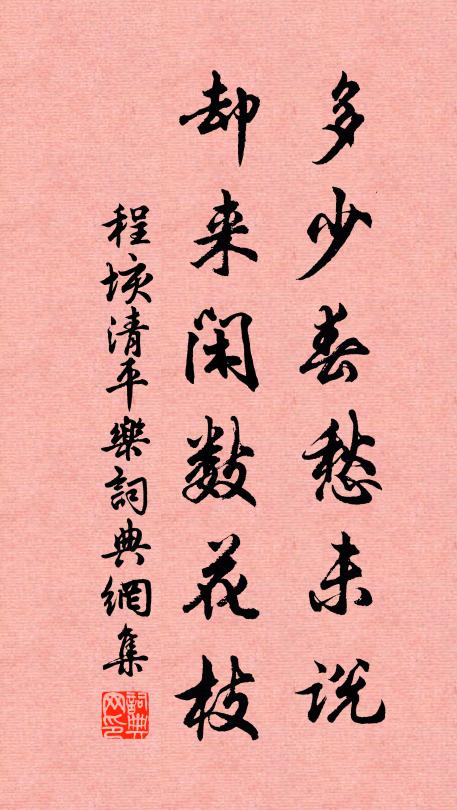 多少春愁未说
却来闲数花枝
程垓清平樂詞典網集
詞典網印